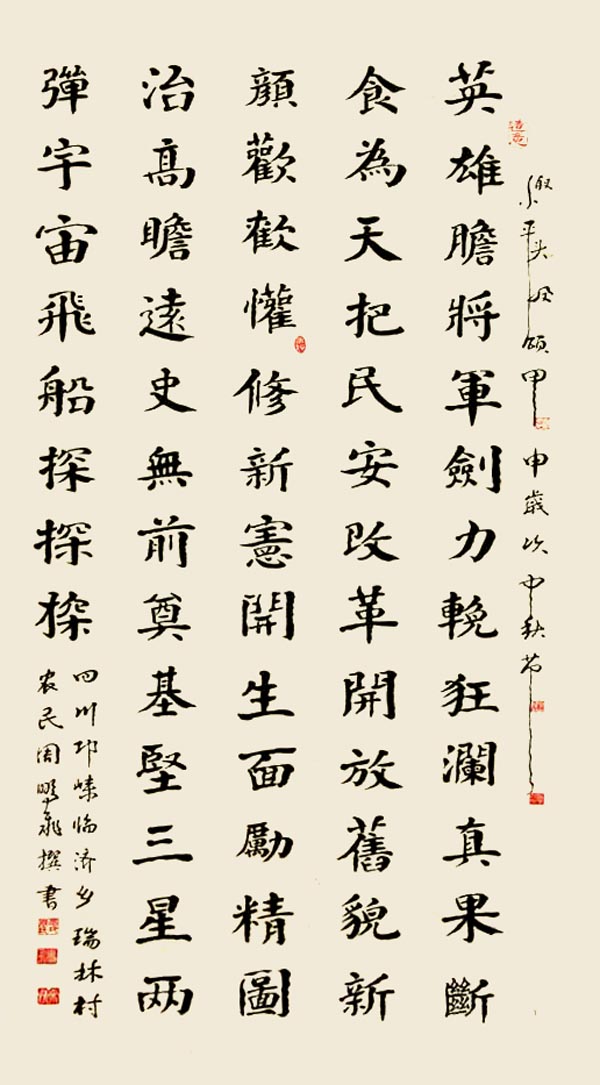 平头頌甲申歲次中秋节
英雄膽將軍劍力輓狂瀾真果斷
食為天把民安改革開放舊貌新
顏歡歡懽修新憲開生面勵精圖
治髙瞻遠史無前奠基堅三星两
彈宇宙飛船探探探
四川邛崍临济乡瑞林村
农民周飛撰書